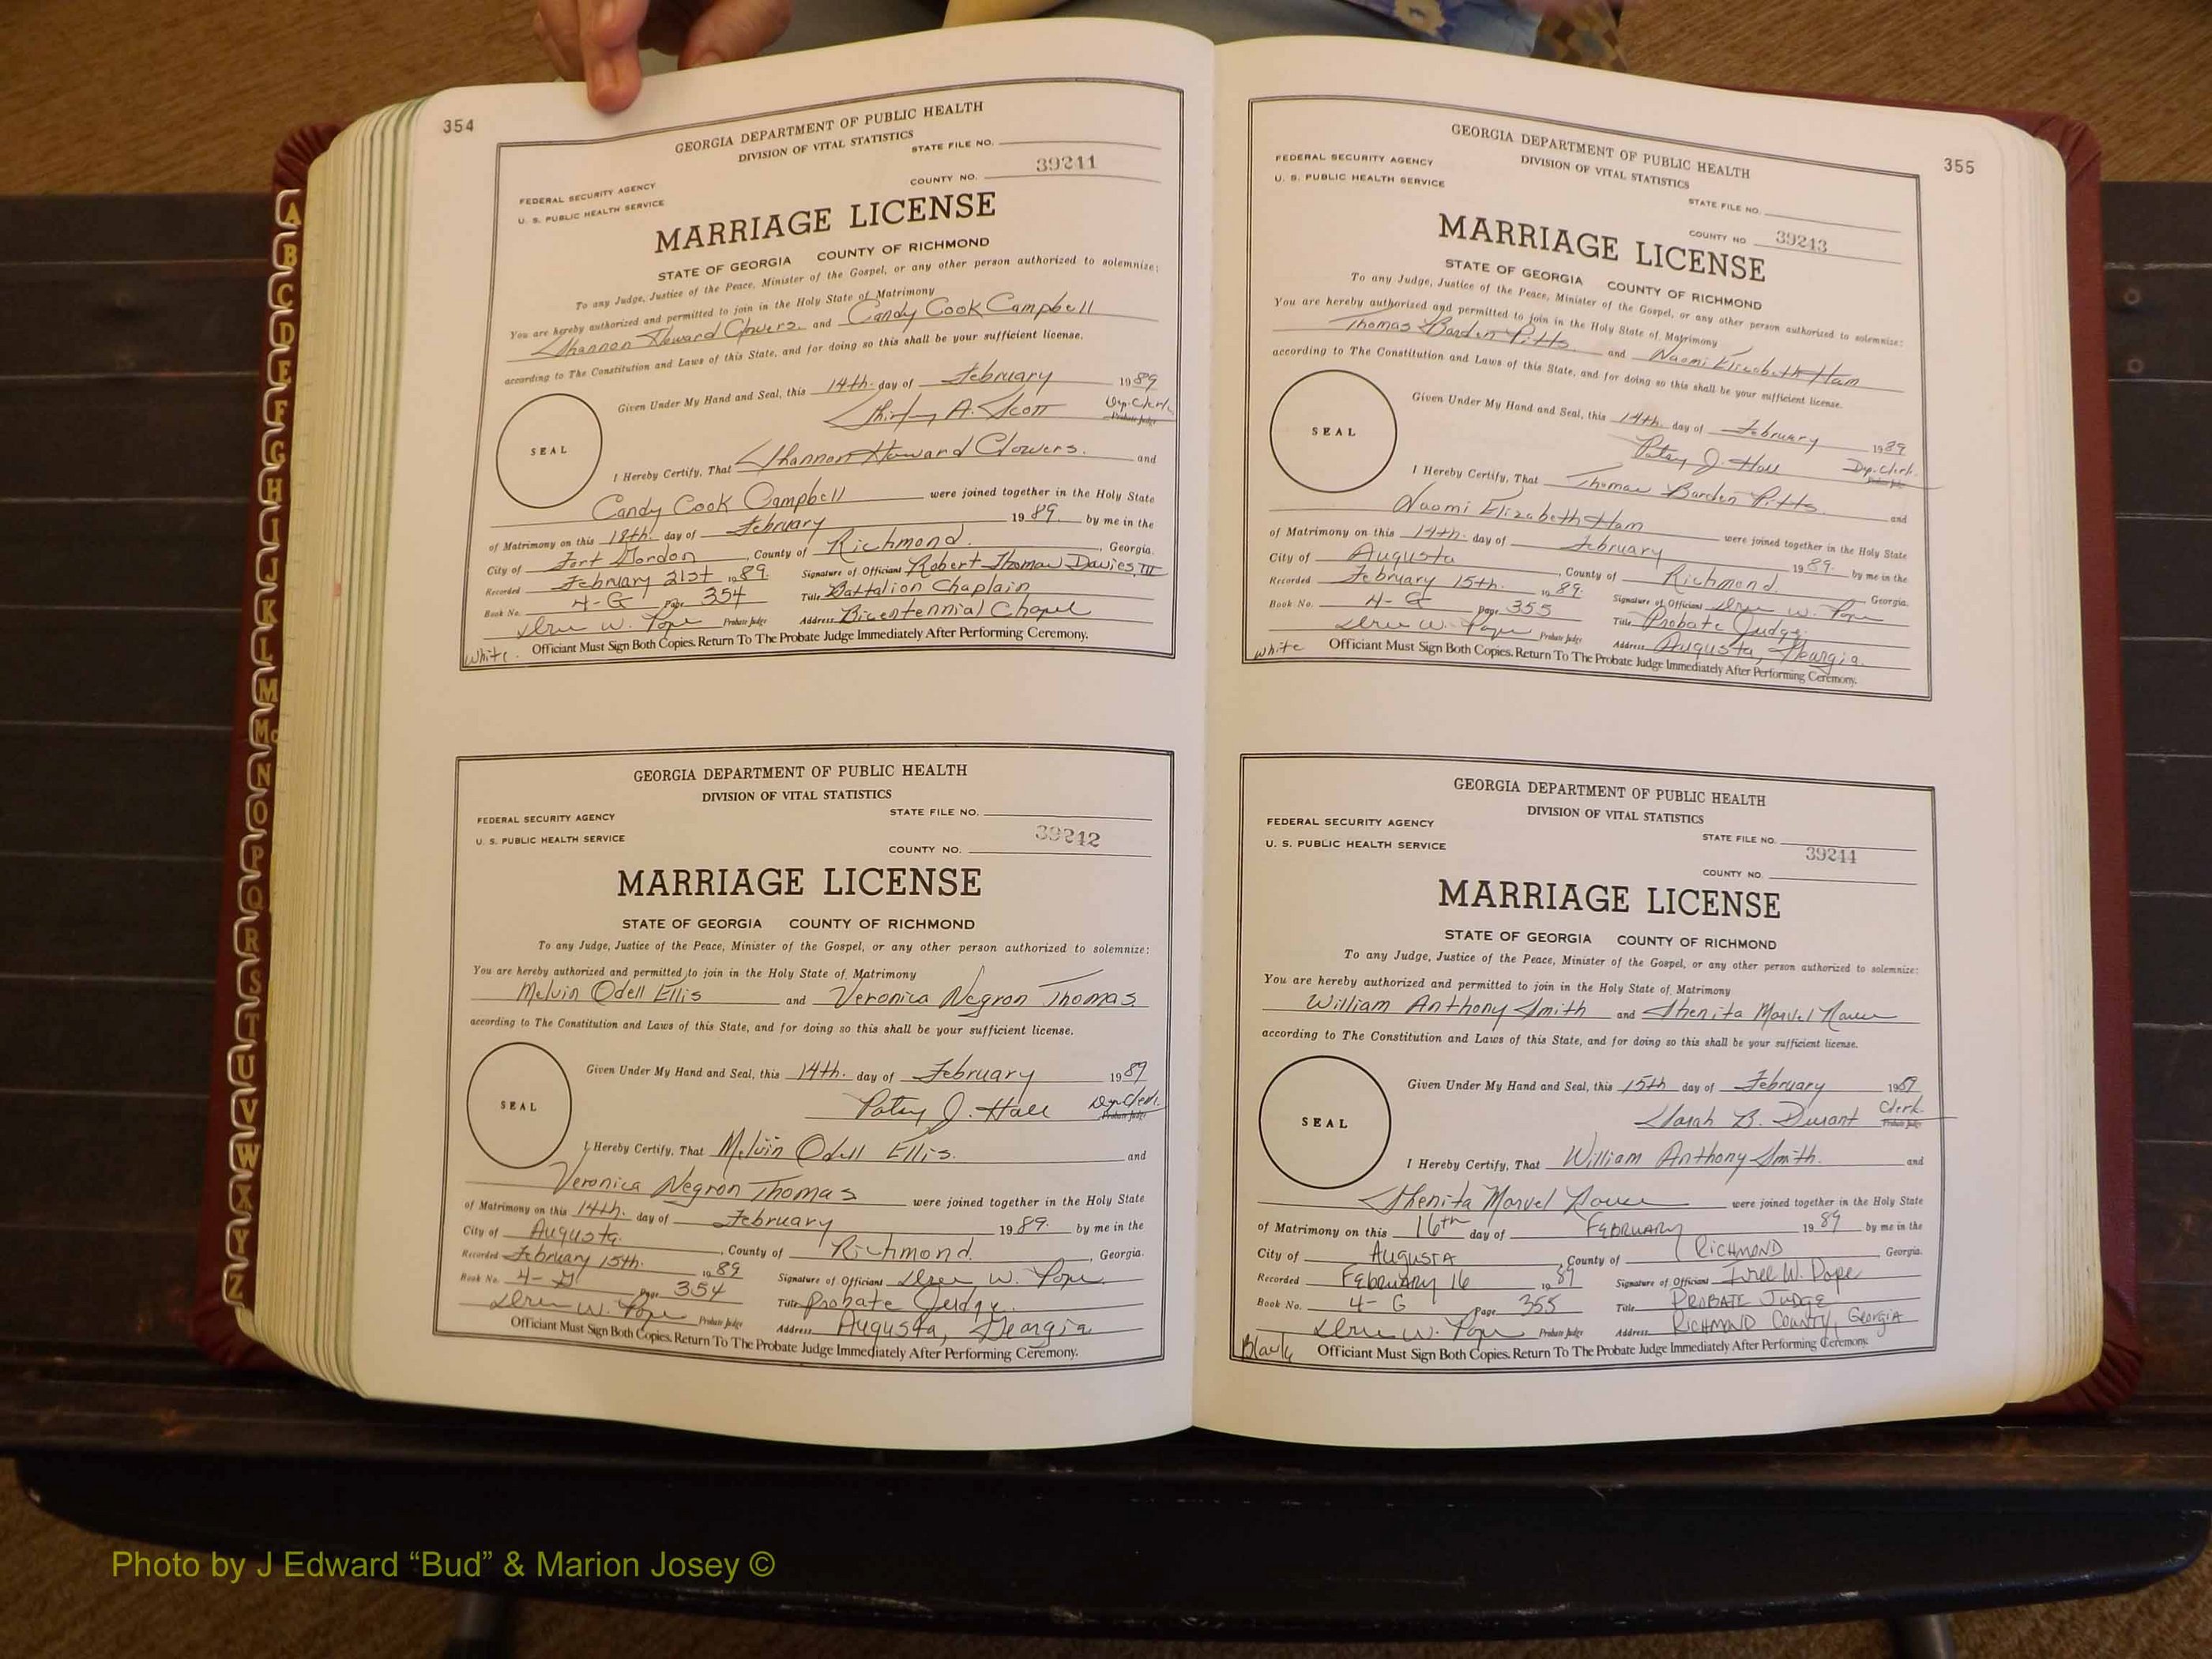 354
GEORGIA DEPARTMENT OF PUBLIC HEALTH
DIVISION OF VITAL STATISTICS
STATE FILE NO.
FEDERAL SECURITY AGENCY
U. S. PUBLIC HEALTH SERVICE
COUNTY NO. 39241
MARRIAGE LICENSE
STATE OF GEORGIA COUNTY OF RICHMOND
To any Judge, Justice of the Peace, Minister of the Gospel, or any other person authorized to solemnize:
You are hereby authorized and permitted to join in the Holy State of Matrimony
Shannon Howard Clowers and Candy Cook Campbell
according to The Constitution and Laws of this State, and for doing so this shall be your sufficient license.
Given Under My Hand and Seal, this 14th. day of February 1989
Shirley A. Scott Dep. Clerk
Probate Judge
SEAL
I Hereby Certify, That Shannon Howard Clowers. and
Candy Cook Campbell were joined together in the Holy State
of Matrimony on this 18th. day of February 1989. by me in the
City of Fort Gordon, County of Richmond, Georgia.
Recorded February 21st 1989. Signature of Officiant Robert Thomas Davies, III
Book No. 4-G Page 354 Title Battalion Chaplain
Drew W. Pope Probate Judge Address Bicentennial Chapel
White. Officiant Must Sign Both Copies. Return To The Probate Judge Immediately After Performing Ceremony.
GEORGIA DEPARTMENT OF PUBLIC HEALTH
DIVISION OF VITAL STATISTICS
STATE FILE NO.
FEDERAL SECURITY AGENCY
U. S. PUBLIC HEALTH SERVICE
COUNTY NO. 39242
MARRIAGE LICENSE
STATE OF GEORGIA COUNTY OF RICHMOND
To any Judge, Justice of the Peace, Minister of the Gospel, or any other person authorized to solemnize:
You are hereby authorized and permitted to join in the Holy State of Matrimony
Melvin Odell Ellis and Veronica Negron Thomas
according to The Constitution and Laws of this State, and for doing so this shall be your sufficient license.
Given Under My Hand and Seal, this 14th. day of February 1989
Patsy J. Hall Dep. Clerk.
Probate Judge
SEAL
I Hereby Certify, That Melvin Odell Ellis. and
Veronica Negron Thomas were joined together in the Holy State
of Matrimony on this 14th. day of February 1989. by me in the
City of Augusta, County of Richmond. Georgia.
Recorded February 15th. 1989 Signature of Officiant W. Pope
Book No. 4-G Page 354 Title Probate Judge.
W. Pope Probate Judge Address Augusta, Georgia
Officiant Must Sign Both Copies. Return To The Probate Judge Immediately After Performing Ceremony.
355
GEORGIA DEPARTMENT OF PUBLIC HEALTH
DIVISION OF VITAL STATISTICS
FEDERAL SECURITY AGENCY
U. S. PUBLIC HEALTH SERVICE
STATE FILE NO.
COUNTY NO 39243
MARRIAGE LICENSE
STATE OF GEORGIA COUNTY OF RICHMOND
To any Judge, Justice of the Peace, Minister of the Gospel, or any other person authorized to solemnize:
You are hereby authorized and permitted to join in the Holy State of Matrimony
Thomas Barden Pitts and Naomi Elizabeth Ham
according to The Constitution and Laws of this State, and for doing so this shall be your sufficient license.
Given Under My Hand and Seal, this 14th. day of February 1989
Patsy J. Hall Dep. Clerk.
Probate Judge
SEAL
I Hereby Certify, That Thomas Barden Pitts. and
Naomi Elizabeth Ham were joined together in the Holy State
of Matrimony on this 14th. day of February 1989. by me in the
City of Augusta, County of Richmond. Georgia.
Recorded February 15th. 1989. Signature of Officiant W. Pope
Book No. 4-G Page 355 Title Probate Judge.
W. Pope Probate Judge Address Augusta, Georgia.
White Officiant Must Sign Both Copies. Return To The Probate Judge Immediately After Performing Ceremony.
GEORGIA DEPARTMENT OF PUBLIC HEALTH
DIVISION OF VITAL STATISTICS
FEDERAL SECURITY AGENCY
U. S. PUBLIC HEALTH SERVICE
STATE FILE NO.
39244
COUNTY NO.
MARRIAGE LICENSE
STATE OF GEORGIA COUNTY OF RICHMOND
To any Judge, Justice of the Peace, Minister of the Gospel, or any other person authorized to solemnize:
You are hereby authorized and permitted to join in the Holy State of Matrimony
William Anthony Smith and Shenita Marvel
according to The Constitution and Laws of this State, and for doing so this shall be your sufficient license.
Given Under My Hand and Seal, this 15th day of February 1989
Sarah B. Durant Clerk.
Probate Judge
SEAL
I Hereby Certify, That William Anthony Smith. and
Shenita Marvel were joined together in the Holy State
of Matrimony on this 16th day of FEBRUARY 1989 by me in the
City of AUGUSTA, County of RICHMOND Georgia.
Recorded FEBRUARY 16 1989 Signature of Officiant W. Pope
Book No. 4-G Page 355 Title PROBATE JUDGE
W. Pope Probate Judge Address RICHMOND COUNTY, GEORGIA
Black Officiant Must Sign Both Copies. Return To The Probate Judge Immediately After Performing Ceremony.
A
B
C
D
E
F
G
H
I
J
K
L
M
Mc
N
O
P
Q
R
S
T
U
V
W
X
Y
Z
Photo by J Edward “Bud” & Marion Josey ©